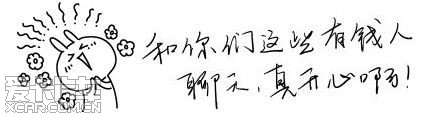 和你们这些有钱人
聊天,真开心啊!
爱卡汽车
xcar.com.cn